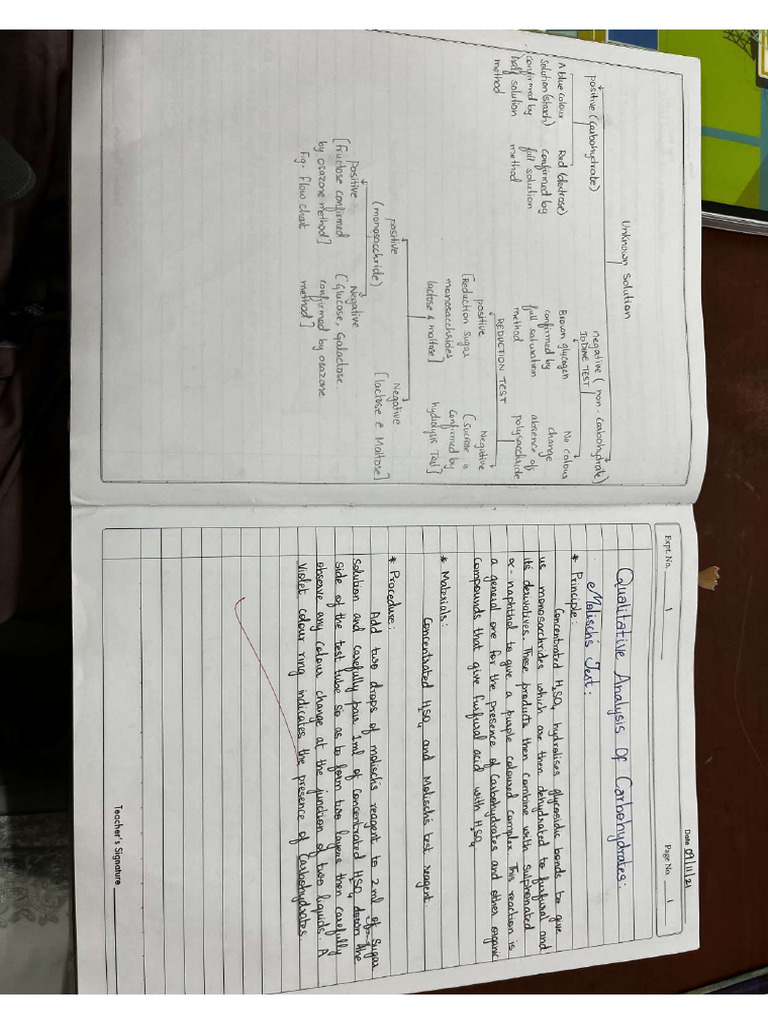 Unknown Solution
positive (carbohydrate)
negative (non-carbohydrate)
IODINE TEST
A blue colour
solution (starch)
confirmed by
half solution
method
Red (dextrose)
confirmed by
full solution
method
Brown glycogen
confirmed by
full saturation
method
No colour
change
absence of
polysacchride
REDUCTION TEST
positive
[Reduction Sugar
monosacchrides
lactose & maltose]
Negative
[sucrose is
confirmed by
hydrolysis Test]
positive
(monosacchride)
Negative
[lactose & Maltose]
positive
[fructose confirmed
by osazone method]
Negative
[Glucose, Galactose
confirmed by osazone
method]
Fig- Flow chart
Date 09/11/21
Expt. No. 1
Page No. 1
Qualitative Analysis Of Carbohydrates:
Molisch's Test:
* Principle:
Concentrated H2SO4 hydrolises glycosidic bonds to give
us monosacchrides which are then dehydrated to furfural and
its derivatives. These products then combine with sulphonated
α-naphthol to give a purple coloured complex. This reaction is
a general one for the presence of Carbohydrates and other organic
compounds that give furfural acid with H2SO4.
* Materials:
Concentrated H2SO4 and Molisch's test reagent.
* Procedure:
Add two drops of molisch's reagent to 2 ml of sugar
solution and carefully pour 1ml of concentrated H2SO4 down the
side of the test tube so as to form two layers then carefully
observe any colour change at the junction of two liquids. A
Violet colour ring indicates the presence of Carbohydrates.
Teacher's Signature